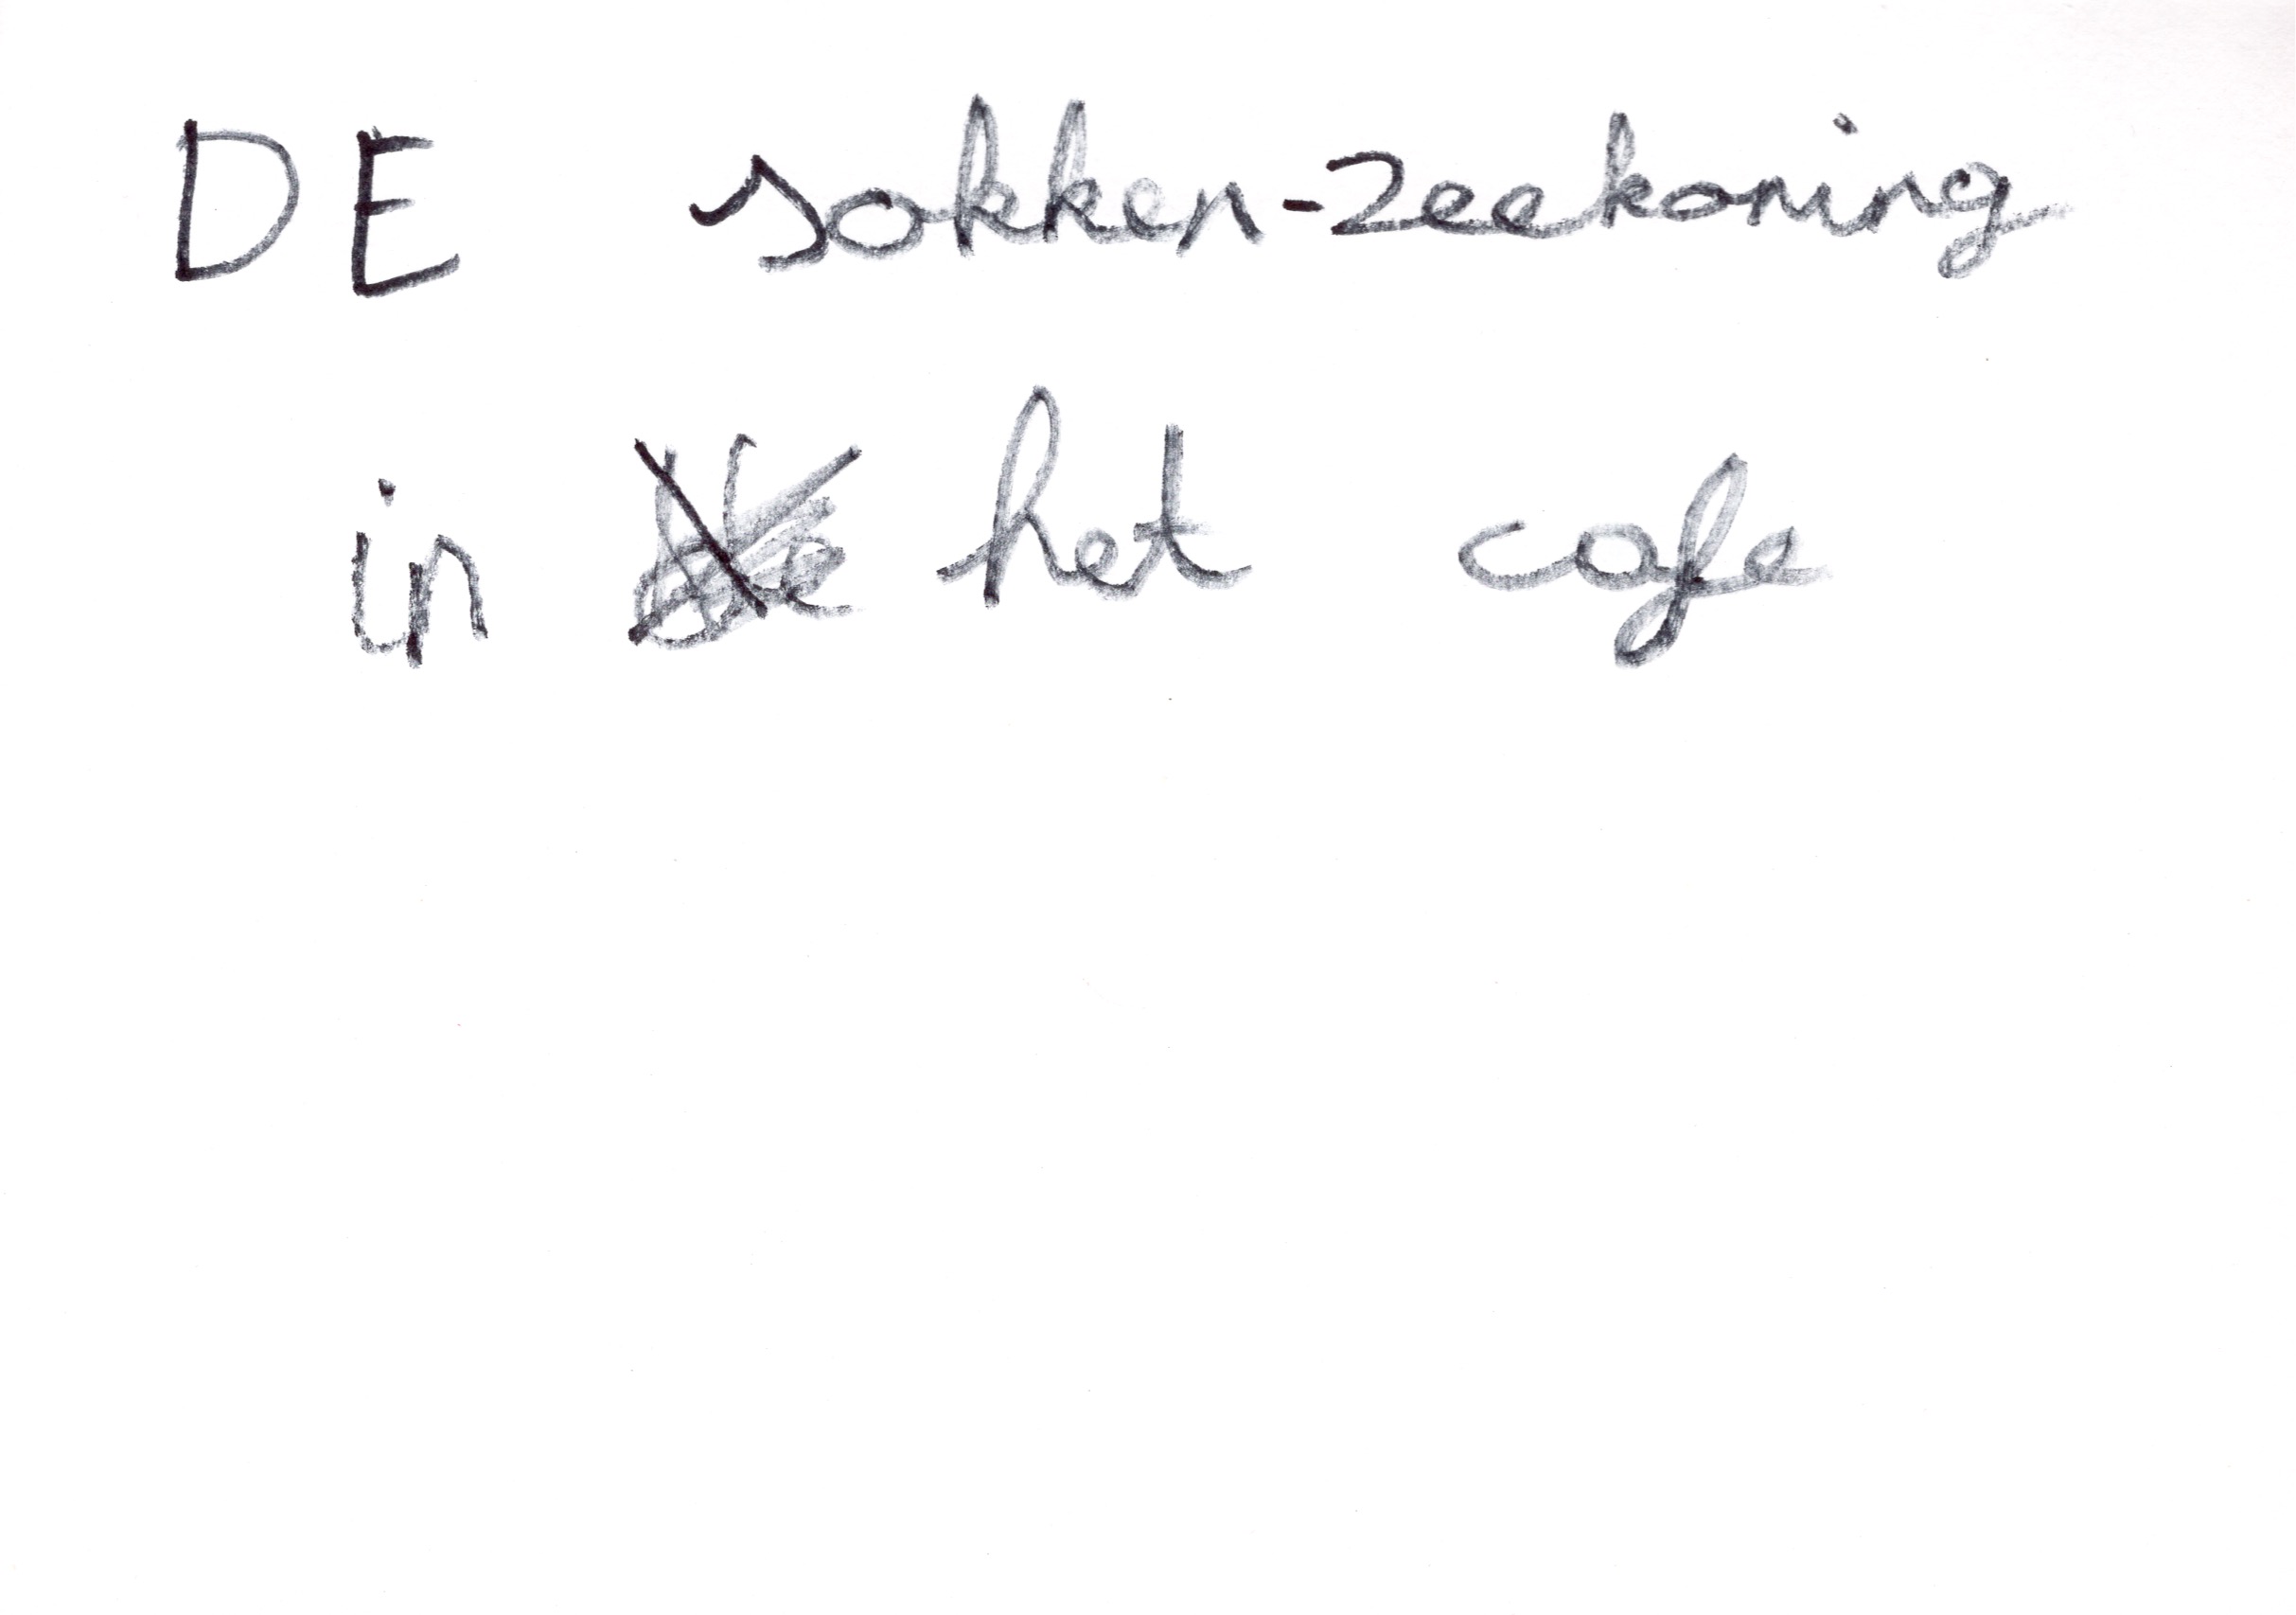 DE sokken-zeekoning
in het cafe